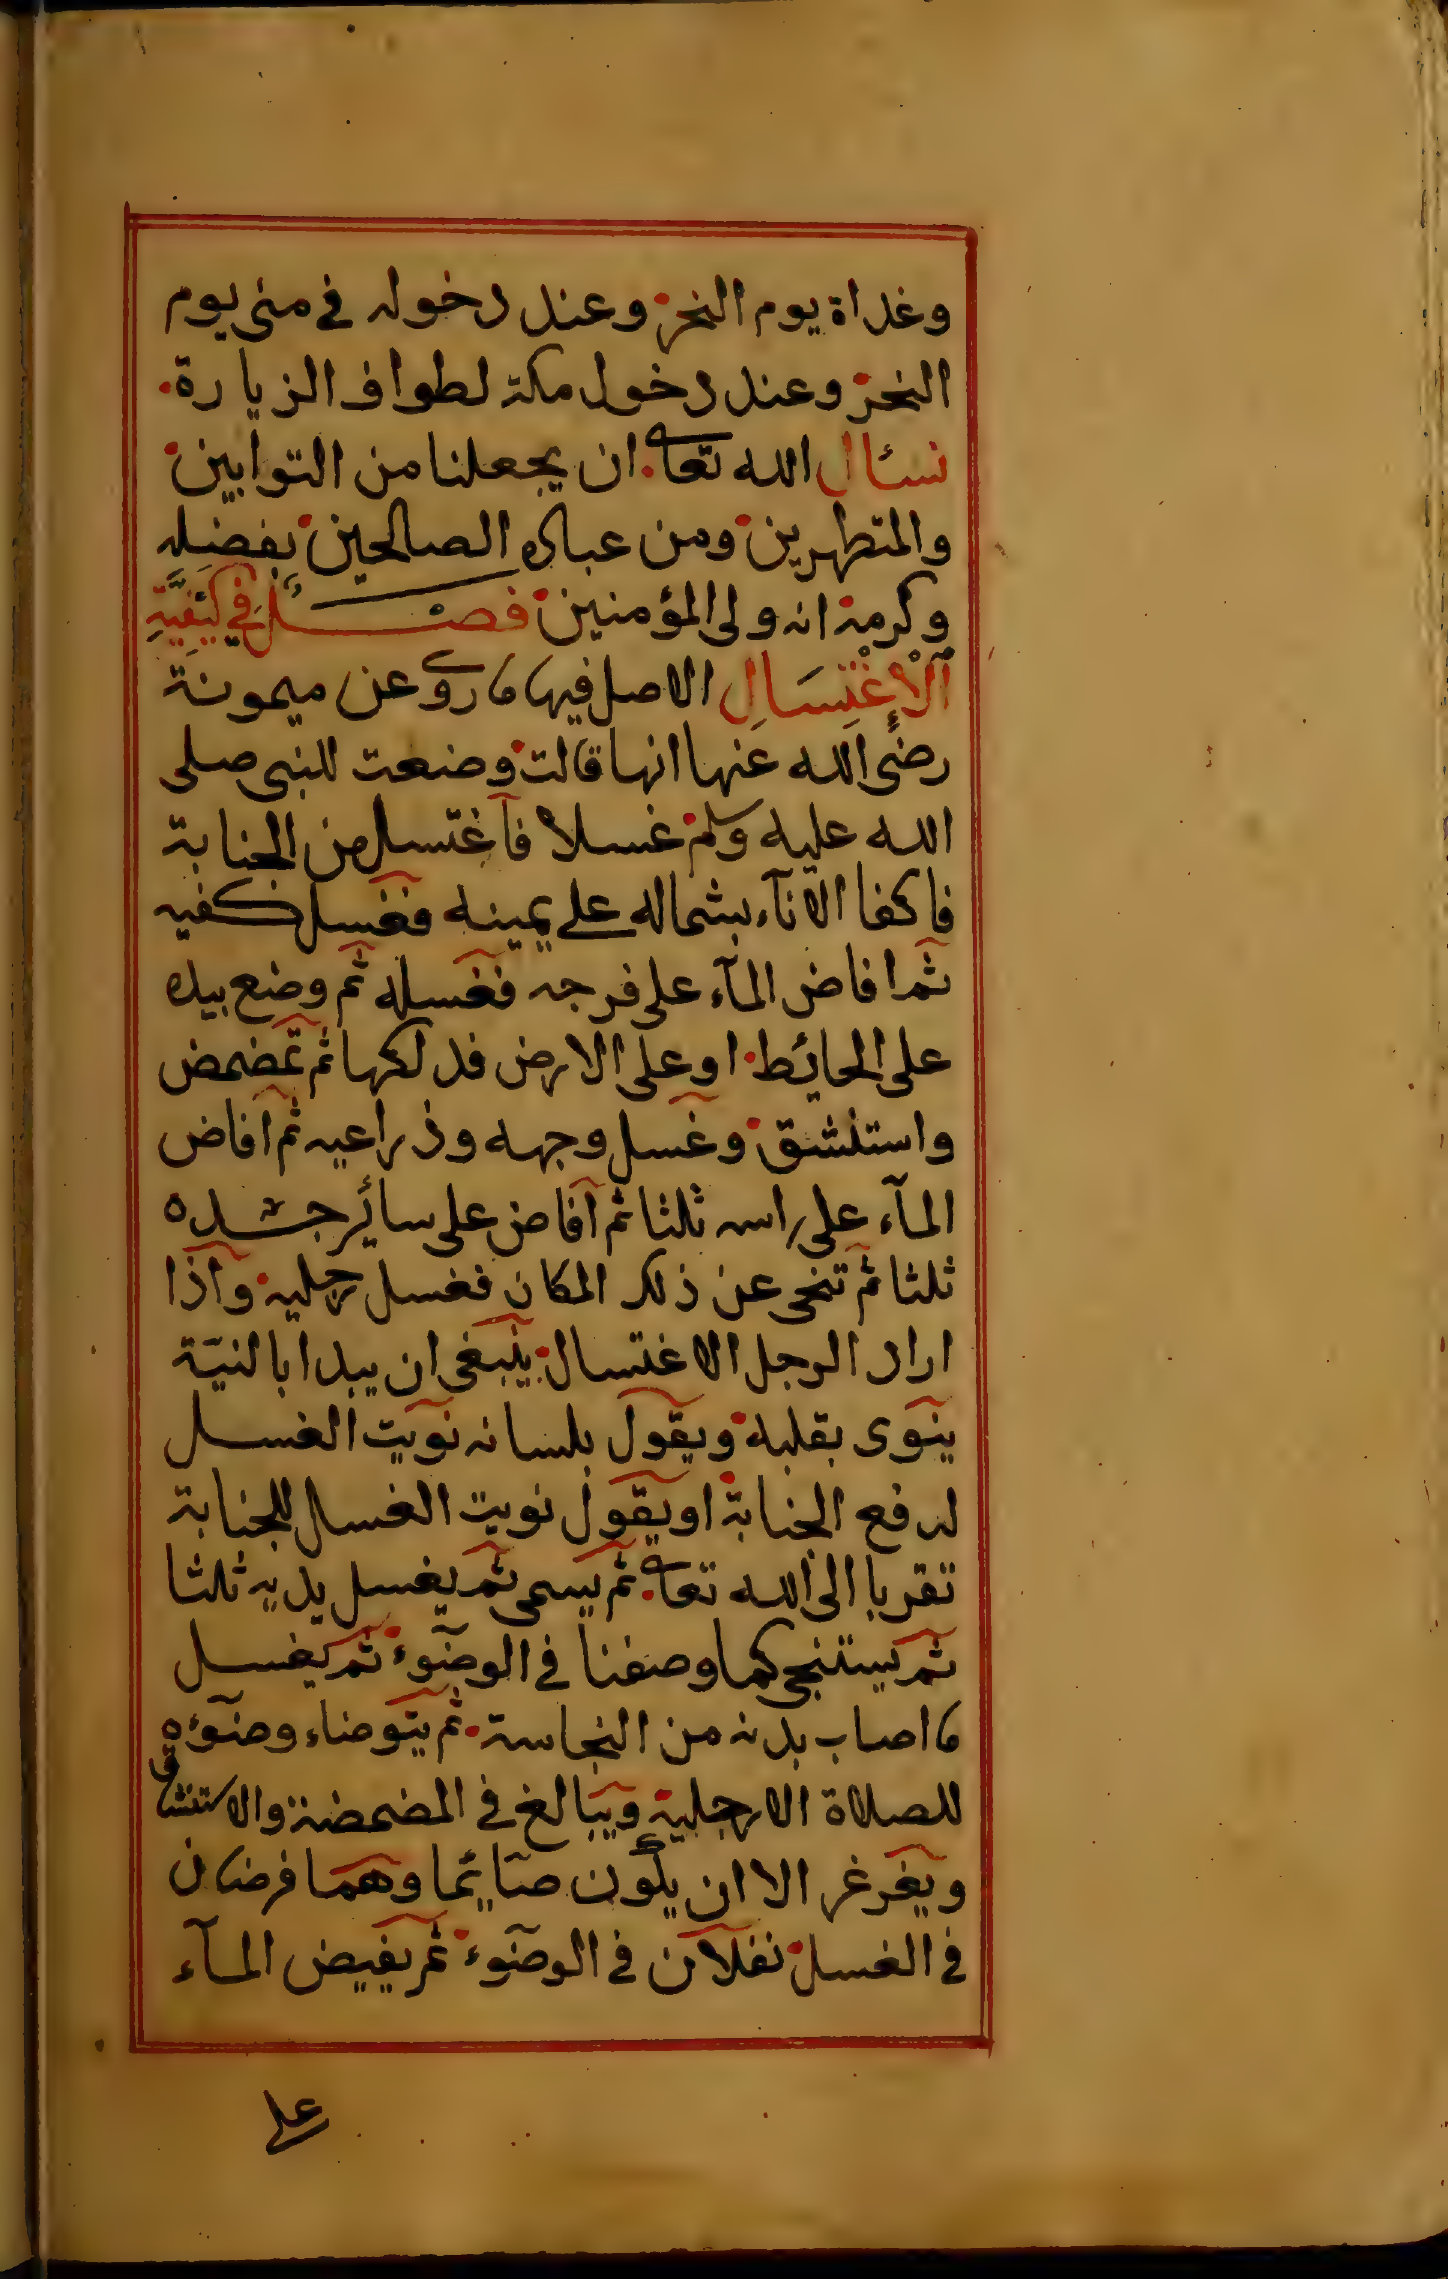 وغداة يوم النحر وعند دخوله في منى يوم
النحر وعند دخول مكة لطواف الزيارة
نسئال الله تعا ان يجعلنا من التوابين
والمتطهرين ومن عباده الصالحين بفضله
وكرمه انه ولى المؤمنين فصل في كيفية
الاغتسال الاصل فيها ما روى عن ميمونة
رضى الله عنها انها قالت وضعت للنبى صلى
الله عليه وسلم غسلا فاغتسل من الجنابة
فاكفا الاناء بشماله على يمينه فغسل كفيه
ثم افاض المآء على فرجه فغسله ثم وضع بيده
على الحائط او على الارض فدلكها ثم تمضمض
واستنشق وغسل وجهه وذراعيه ثم افاض
المآء على راسه ثلثا ثم افاض على سائر جسده
ثلثا ثم تنحى عن ذلك المكان فغسل رجليه واذا
اراد الرجل الاغتسال ينبغى ان يبدا بالنية
ينوى بقلبه ويقول بلسانه نويت الغسل
لدفع الجنابة او يقول نويت الغسل للجنابة
تقربا الى الله تعا ثم يسمى ثم يغسل يديه ثلثا
ثم يستنجى كما وصفنا في الوضوء ثم يغسل
ما اصاب بدنه من النجاسة ثم يتوضاء وضوءه
للصلاة الا رجليه ويبالغ في المضمضة والاستنشاق
ويغرغر الا ان يكون صائما وهما فرضان
في الغسل نفلان في الوضوء ثم يفيض المآء
على